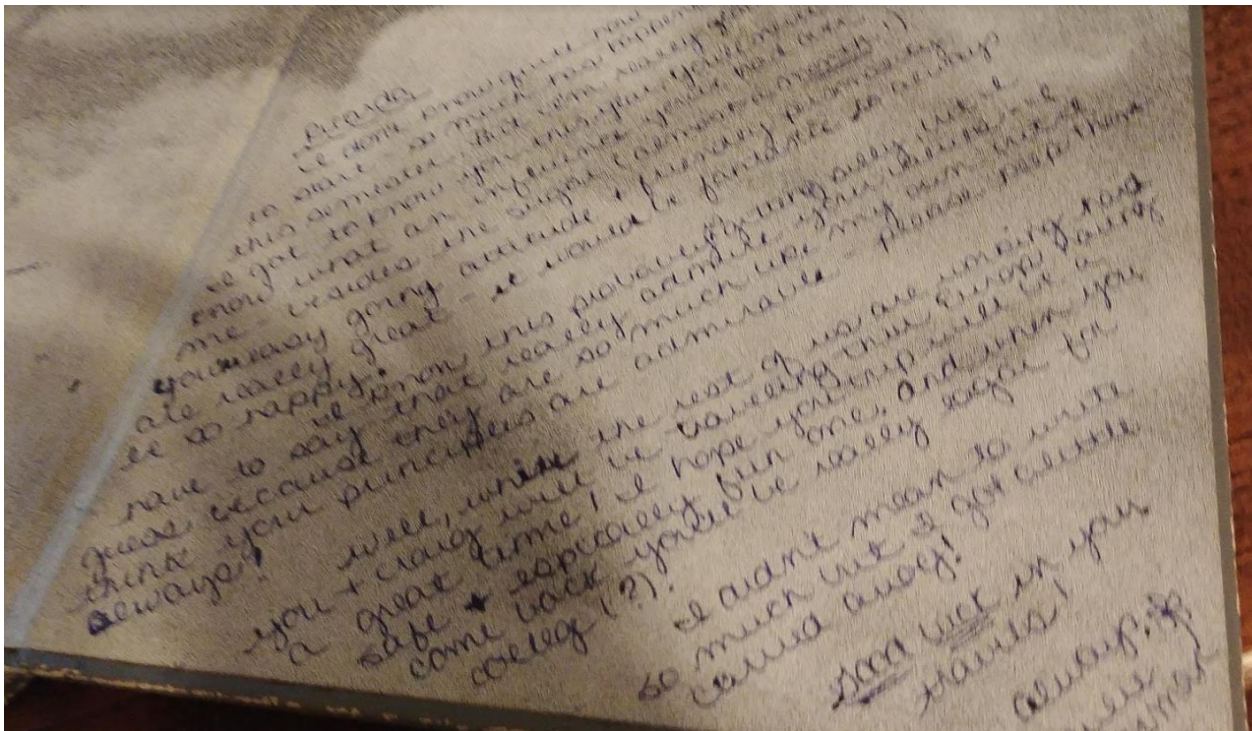 Ricardo
I don't know quite how
to start so much has happened
this semester. But I'm really glad
I got to know you this year. You
know what an influence you've had on
me - besides the slight (almost)
your easy going attitude + friendly personality
are really great - it would be fantastic to always
be so happy.
I know this probably
have to say that I really admire your
guess because they are so much like my own
think your principles are admirable - please keep them
always!
Well, while the rest of us are working hard
you + Craig will be traveling thru Europe having
a great time! I hope your trip will be a
safe + especially fun one, and when you
come back you'll be really eager for
college (?)!
I didn't mean to write
so much but I got a little
carried away!
Good luck in your
travels!
always,